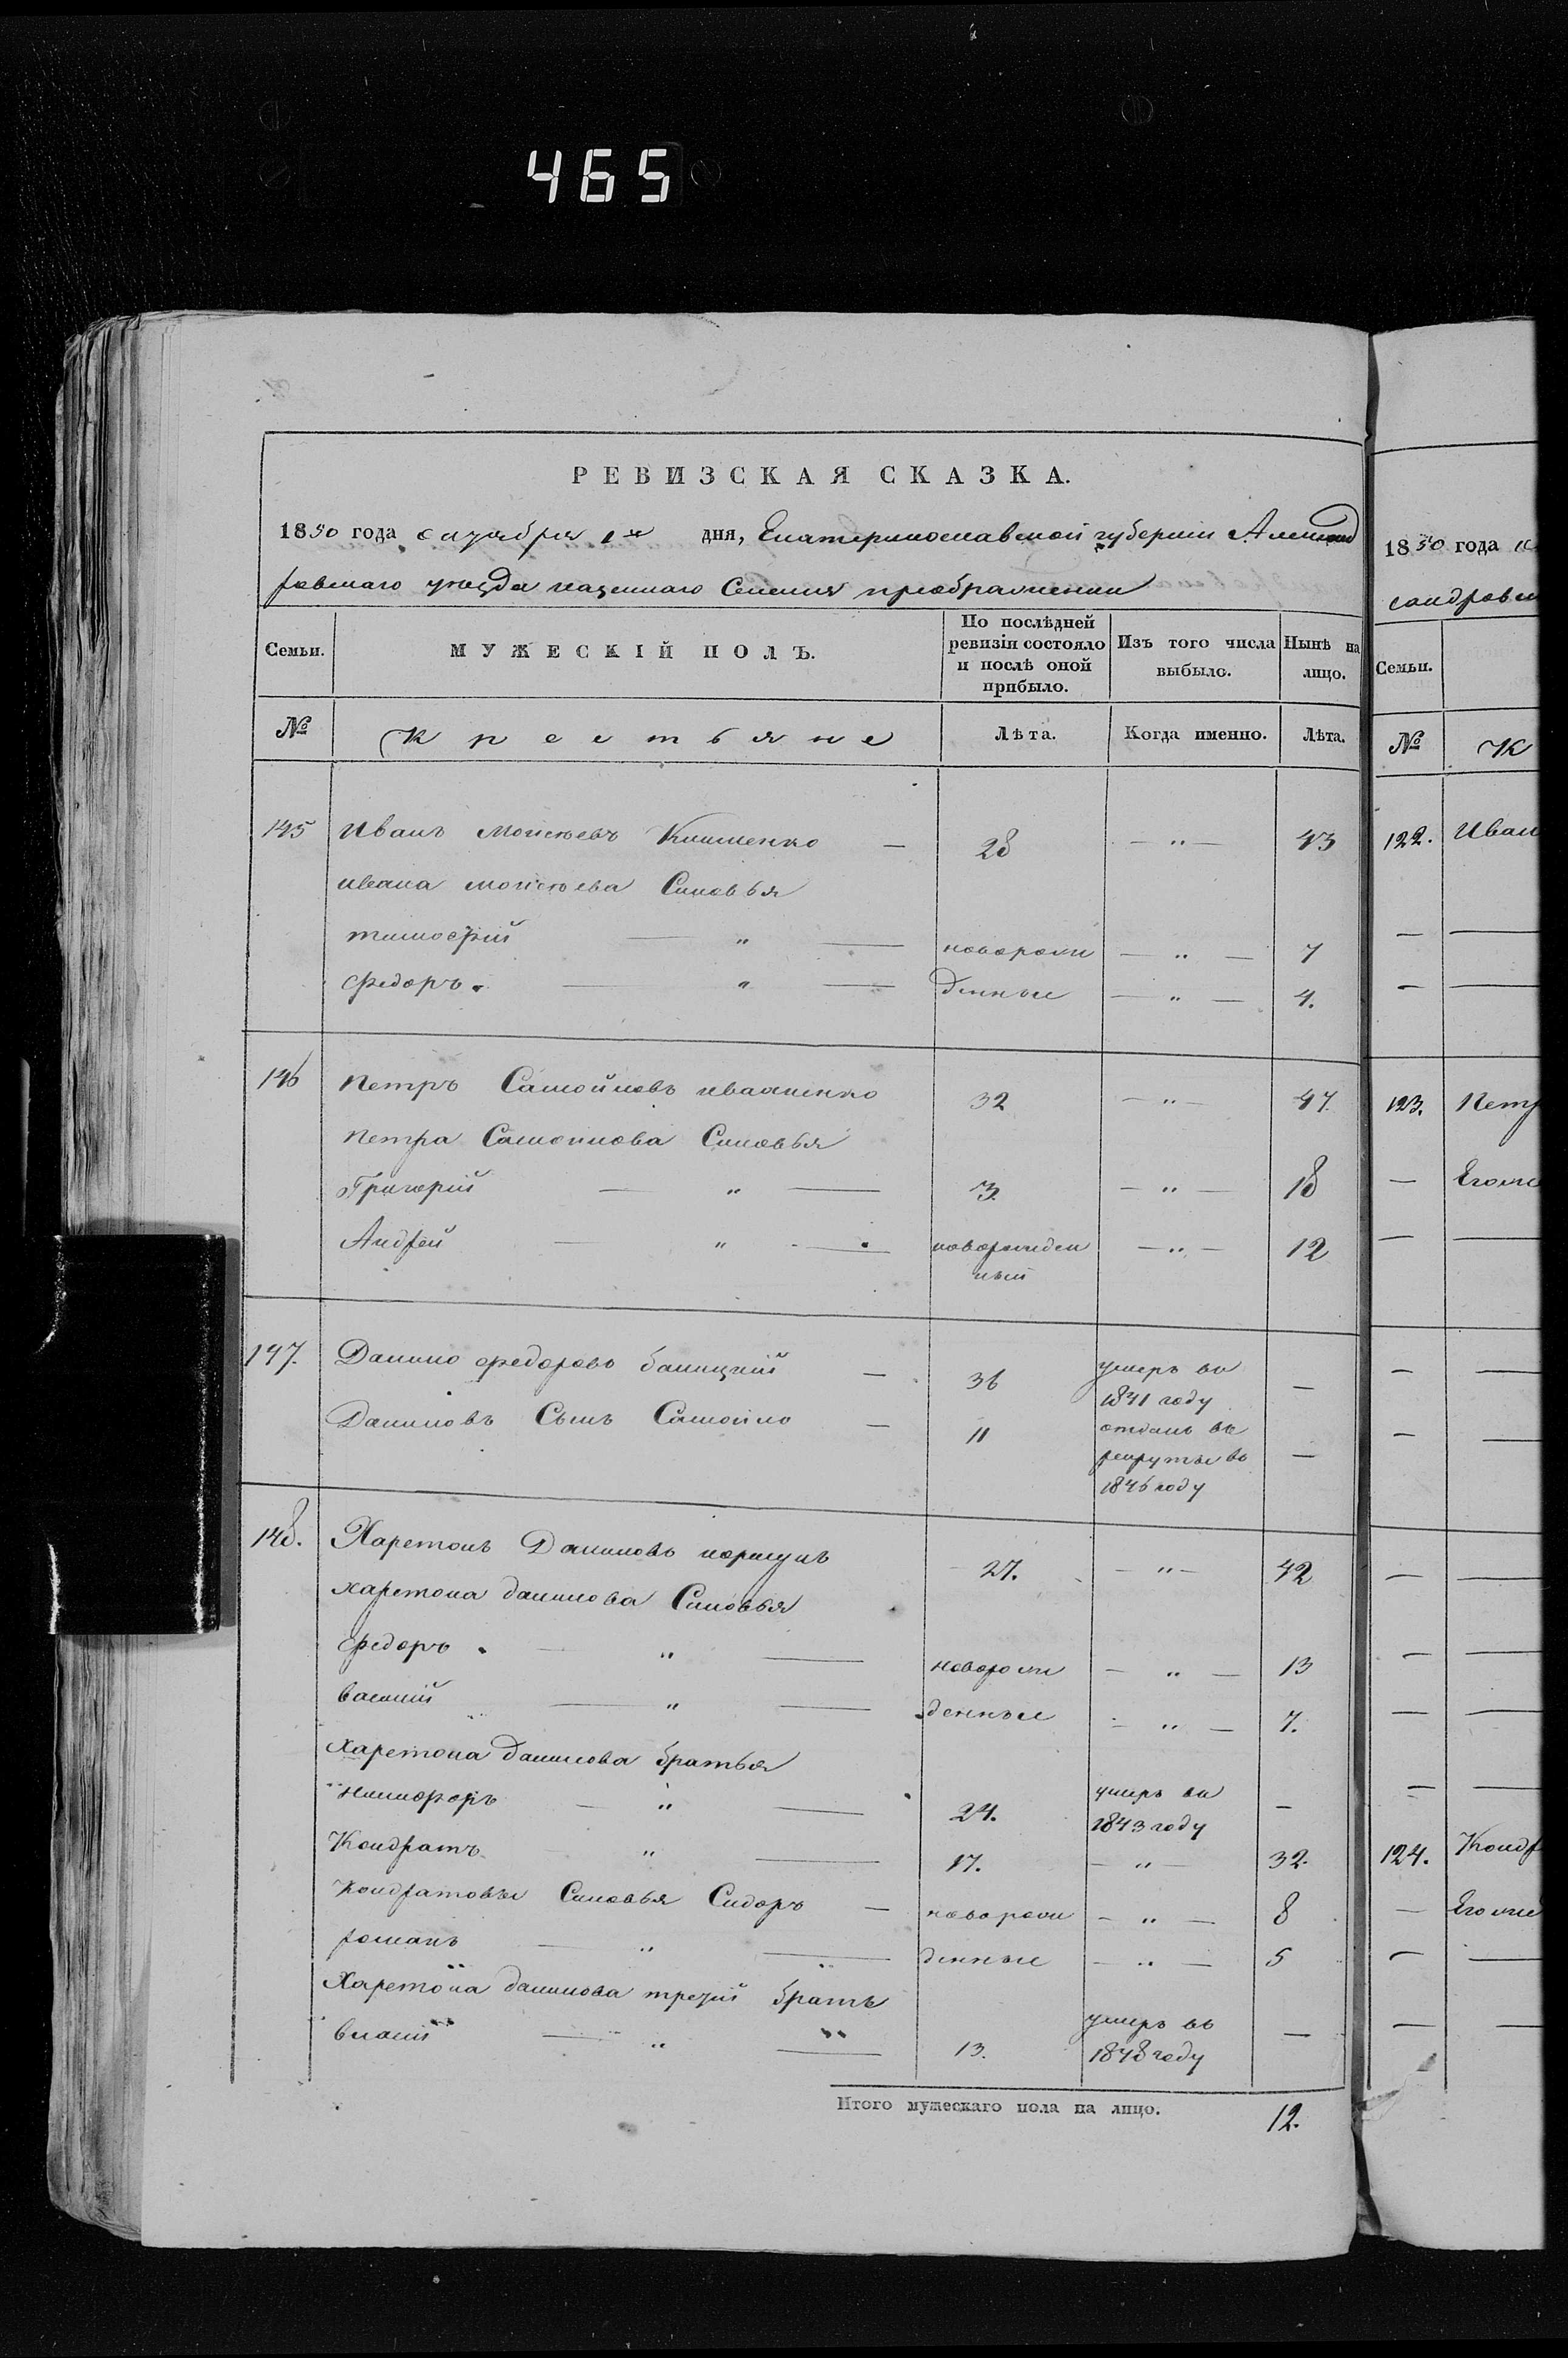 465
РЕВИЗСКАЯ СКАЗКА.
1850 года октября 1го дня, Екатеринославской губернии Александ
ровскаго уезда казеннаго Селения преображенки
Семьи. МУЖЕСКІЙ ПОЛЪ. По послѣдней ревизіи состояло и послѣ оной прибыло. Изъ того числа выбыло. Нынѣ на лицо.
№ Крестьяне Лѣта. Когда именно. Лѣта.
145 Иванъ Моисѣевъ Клименко — 28 — " — 43
ивана моисѣева Синовья
тимофій — " — новорож — " — 7
федоръ. — " — денные — " — 4.
146 Петръ Самойловъ иваненко 32 — " — 47.
Петра Самойлова Синовья
Григорій — " — 3. — " — 18
Андрей — " — новорожден — " — 12
ный
147. Данило федоровъ — 36 умеръ въ —
1841 году
Даниловъ Сынъ Самойло — 11 отданъ въ —
рекруты въ
1846 году
148. Харетонъ Даниловъ коршунъ 27. — " — 42
харетона данилова Синовья
федоръ. — " — новорож — " — 13
василий — " — денные — " — 7.
Харетона данилова братья
никифоръ — " — 24. умеръ въ —
1843 году
Кондратъ " — 17. — " — 32.
Кондратовы Синовья Сидоръ — новорож — " — 8
романъ — " — денные — " — 5
Харетона данилова третій братъ
власій — " — 13. умеръ въ —
1848 году
Итого мужескаго пола на лицо. 12.
1850 года
сандровс
Семьи.
№ К
122. Иван
—
—
123. Петр
— Егоже
—
—
—
—
—
—
—
124. Кондр
— Егоже
—
—